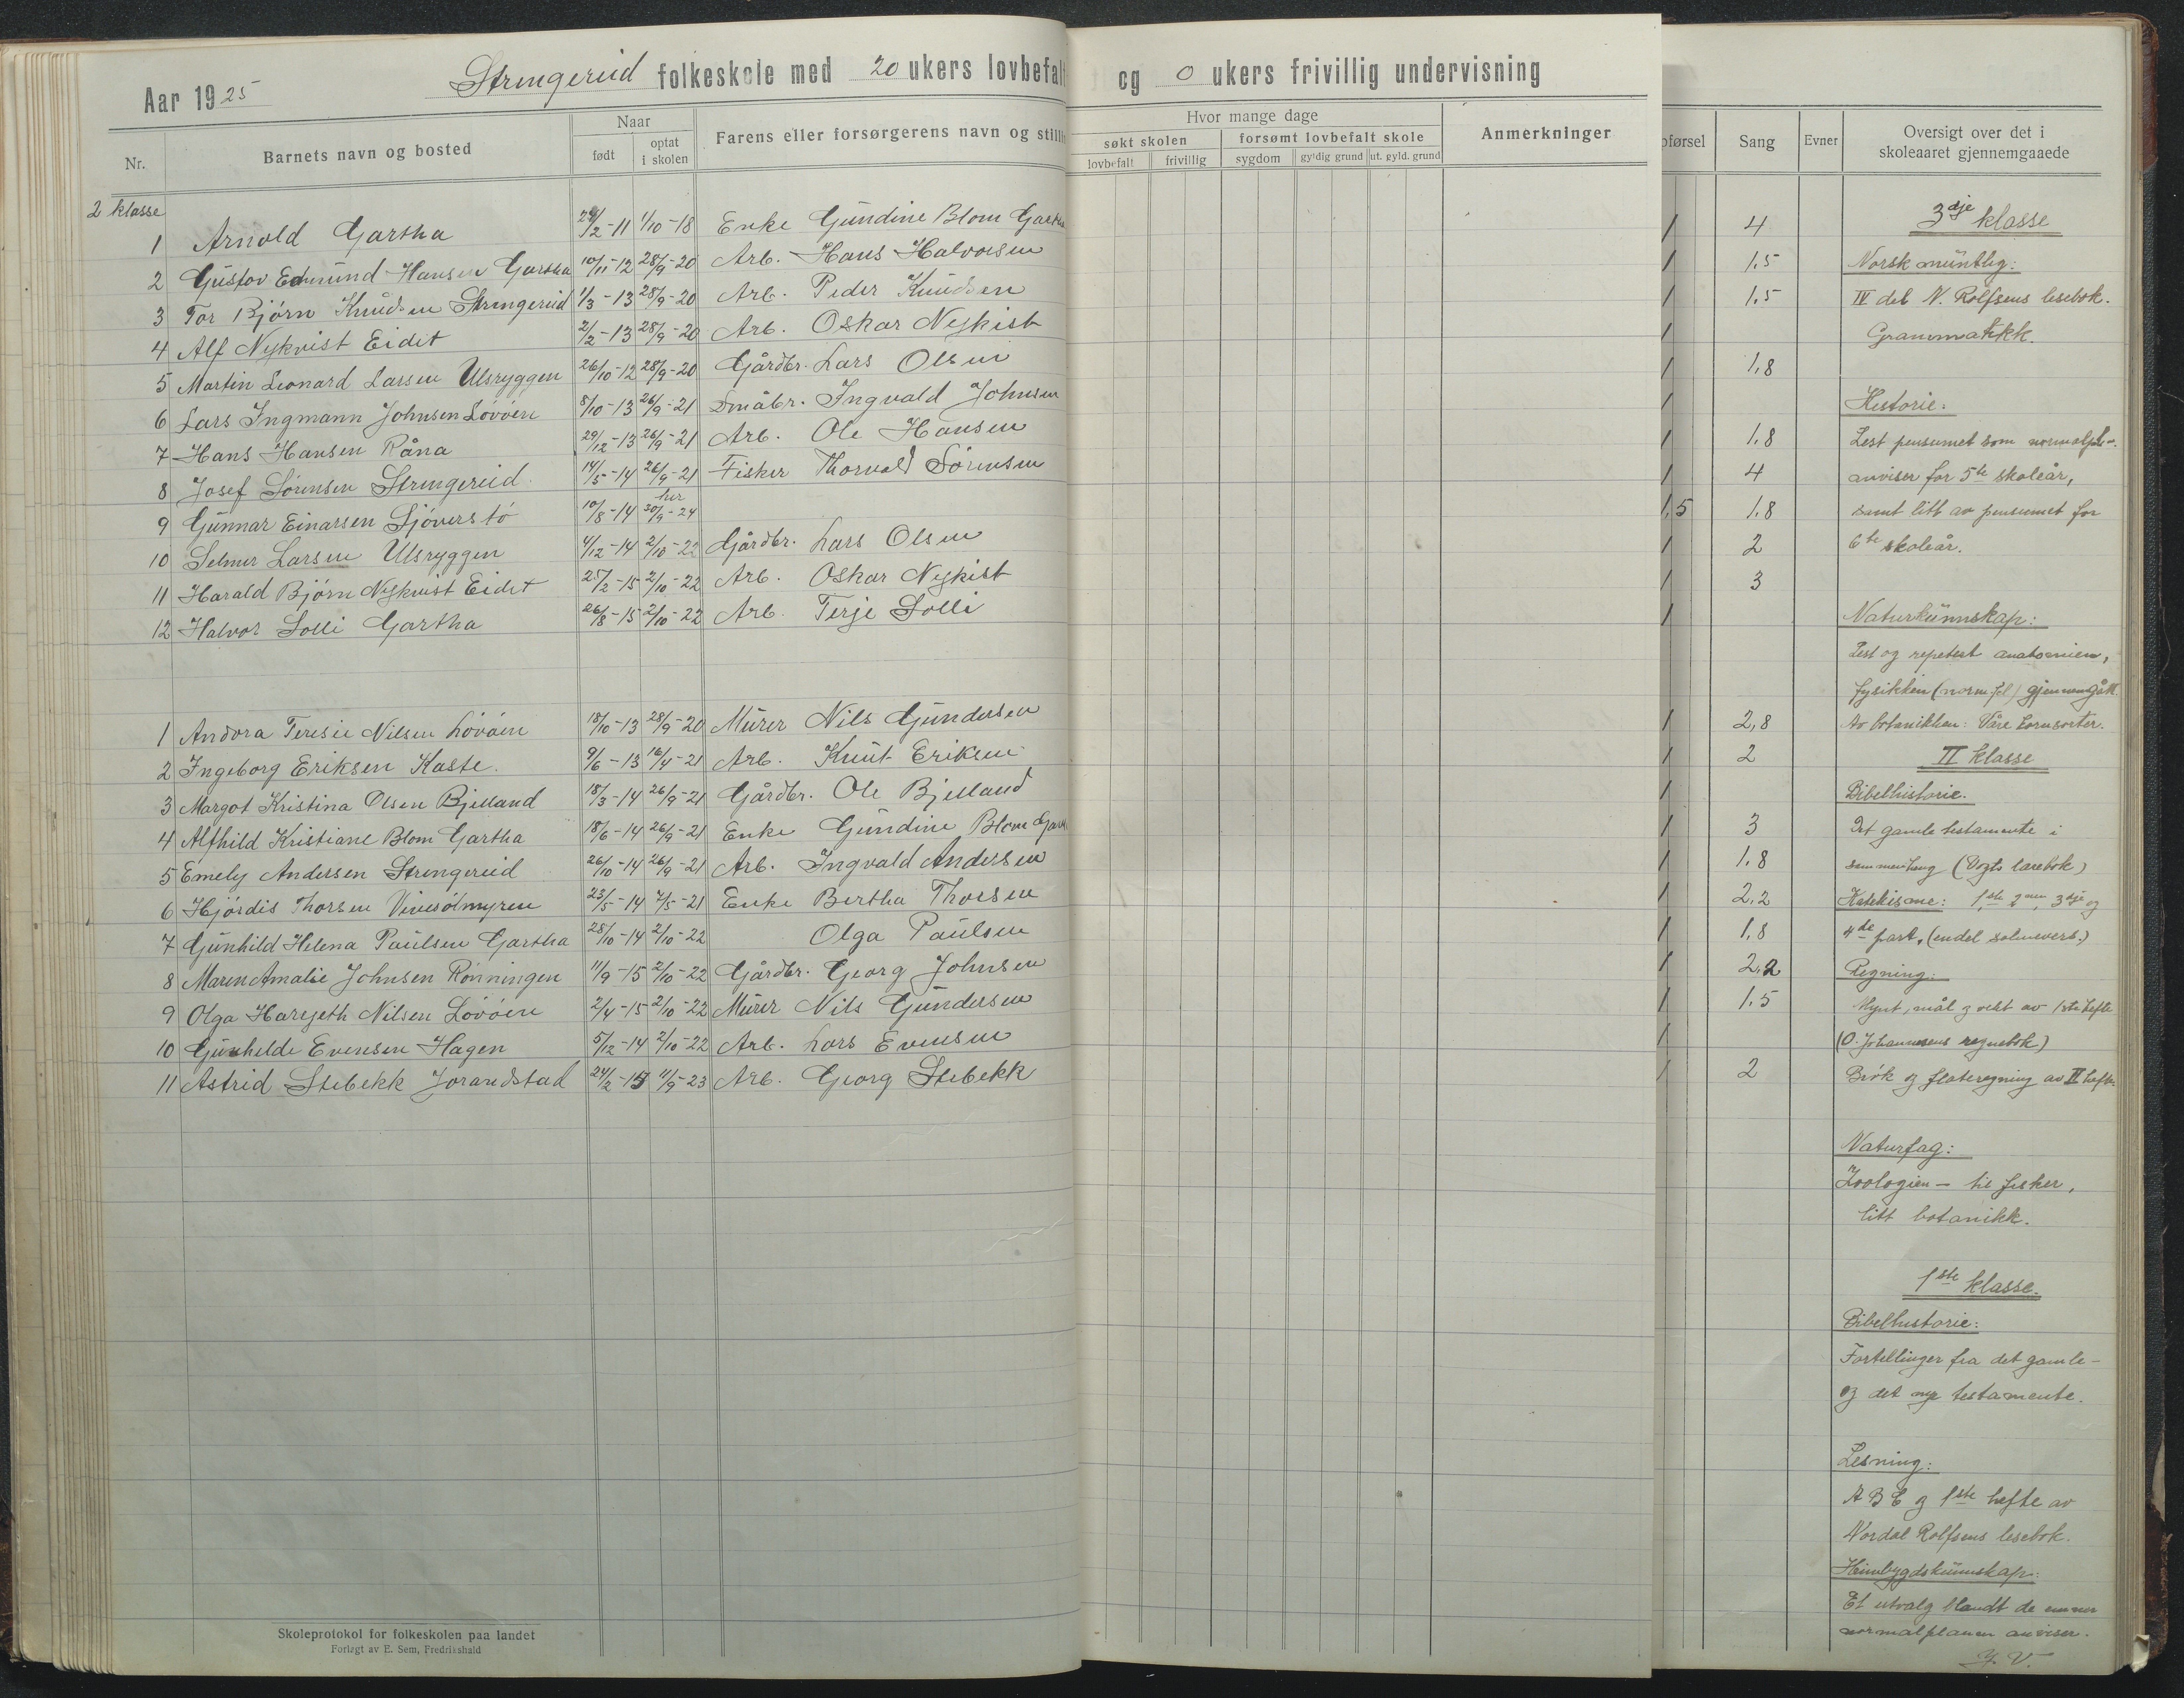 Aar 1925 Stringereid folkeskole med 20 ukers lovbefalt og 0 ukers frivillig undervisning
Nr. Barnets navn og bosted Naar født optat i skolen Farens eller forsørgerens navn og stilli
Hvor mange dage
søkt skolen forsømt lovbefalt skole Anmerkninger
lovbefalt frivillig sygdom gyldig grund ut. gyld. grund
2 klasse
1 Arnold Gartha 24/2-11 1/10-18 Enke Gundine Blom Gartha
2 Gustov Edmund Hansen Gartha 10/11-12 28/9-20 Arb. Hans Halvorsen
3 Tor Bjørn Knudsen Stringereid 1/3-13 28/9-20 Arb. Peder Knudsen
4 Alf Nykvist Eidet 2/2-13 28/9-20 Arb. Oskar Nykist
5 Martin Leonard Larsen Ulsryggen 26/10-12 28/9-20 Gårdbr. Lars Olsen
6 Lars Ingmann Johnsen Lövöen 8/10-13 26/9-21 Småbr. Ingvald Johnsen
7 Hans Hansen Råna 29/12-13 26/9-21 Arb. Ole Hansen
8 Josef Sörensen Stringereid 14/5-14 26/9-21 Fisker Thorvald Sörensen
9 Gunnar Einarsen Sjöverstö 10/8-14 her 30/9-24
10 Selmer Larsen Ulsryggen 4/12-14 2/10-22 Gårdbr. Lars Olsen
11 Harald Bjørn Nykvist Eidet 25/2-15 2/10-22 Arb. Oskar Nykist
12 Halvor Solli Gartha 26/8-15 2/10-22 Arb. Terje Solli
1 Andora Teresie Nilsen Lövöen 18/10-13 28/9-20 Murer Nils Gundersen
2 Ingeborg Eriksen Kaste. 9/6-13 16/4-21 Arb. Knut Eriksen
3 Margot Kristina Olsen Bjelland 18/3-14 26/9-21 Gårdbr. Ole Bjelland
4 Alfhild Kristiane Blom Gartha 18/6-14 26/9-21 Enke Gundine Blom Gart
5 Emely Andersen Stringereid 26/10-14 26/9-21 Arb. Ingvald Andersen
6 Hjördis Thorsen Vivesölmyren 23/5-14 7/5-21 Enke Bertha Thorsen
7 Gunhild Helena Paulsen Gartha 28/10-14 2/10-22 Olga Paulsen
8 Maren Amalie Johnsen Rönningen 11/9-15 2/10-22 Gårdbr. Georg Johnsen
9 Olga Hargeth Nilsen Lövöen 2/4-15 2/10-22 Murer Nils Gundersen
10 Gunhelde Evensen Hagen 5/12-14 2/10-22 Arb. Lars Evensen
11 Astrid Stebekk Jorandstad 24/2-15 11/9-23 Arb. Georg Stebekk
Skoleprotokol for folkeskolen paa landet
Forlagt av E. Sem, Fredrikshald
pførsel Sang Evner Oversigt over det i skoleaaret gjennemgaaede
1 4
1 1,5
1 1,5
1
1 1,8
1
1 1,8
1 4
1,5 1,8
1 2
1 3
1
1 2,8
1 2
1
1 3
1 1,8
1 2,2
1 1,8
1 2,2
1 1,5
1
1 2
3dje klasse
Norsk muntlig:
IV del N. Rolfsens lesebok.
Grammatikk.
Historie:
Lest pensumet som normalpl-
anviser for 5te skoleår,
samt litt av pensumet for
6te skoleår.
Naturkunnskap:
Lest og repetert anatomien,
fysikken (norm.pl) gjennemgått.
Av botanikken: Våre kornsorter.
II klasse
Bibelhistorie.
Det gamle testamente i
sammenheng (Vogts lærebok)
Katekisme: 1ste, 2nen, 3dje og
4de part, (endel salmevers.)
Regning:
Mynt, mål og vekt av 1ste hefte
(O. Johannesens regnebok)
Brök og flateregning av II hefte.
Naturfag:
Zoologien - til fisker,
litt botanikk.
1ste klasse.
Bibelhistorie:
Fortellinger fra det gamle-
og det nye testamente.
Lesning:
A B C og 1ste hefte av
Nordal Rolfsens lesebok.
Heimbygdskunnskap:
Et utvalg blandt de emner
normalplanen anviser.